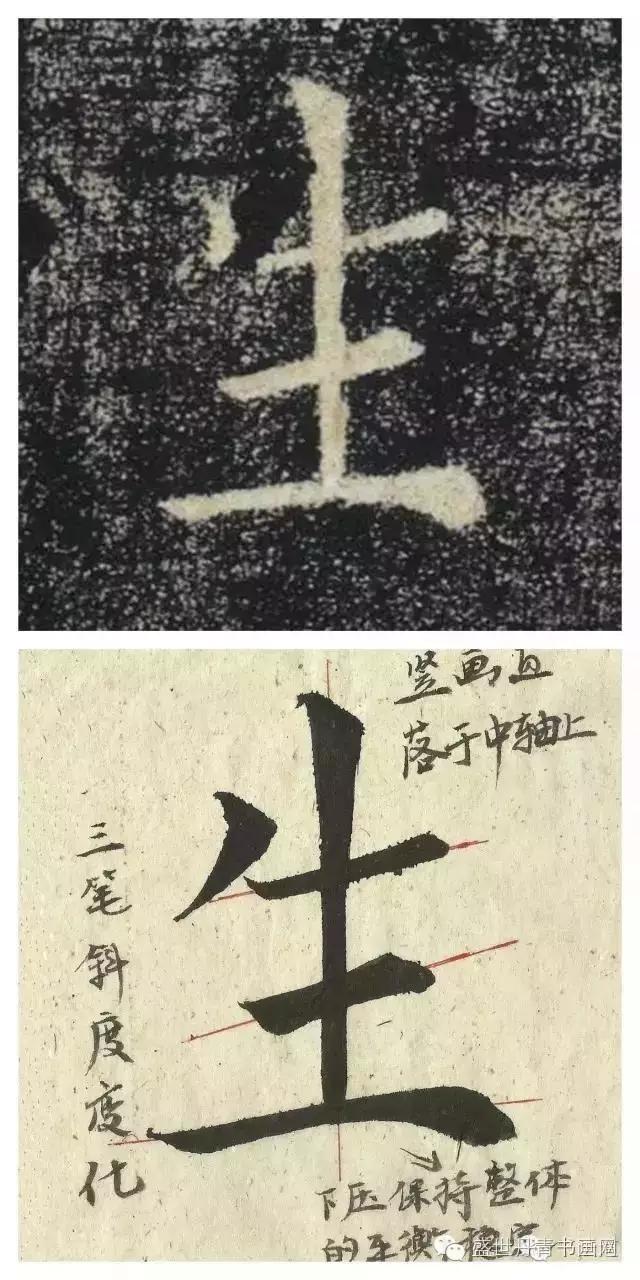 生
竖画直
落于中轴上
生
三笔斜度变化
下压保持整体
的平衡稳定
盛世丹青书画网